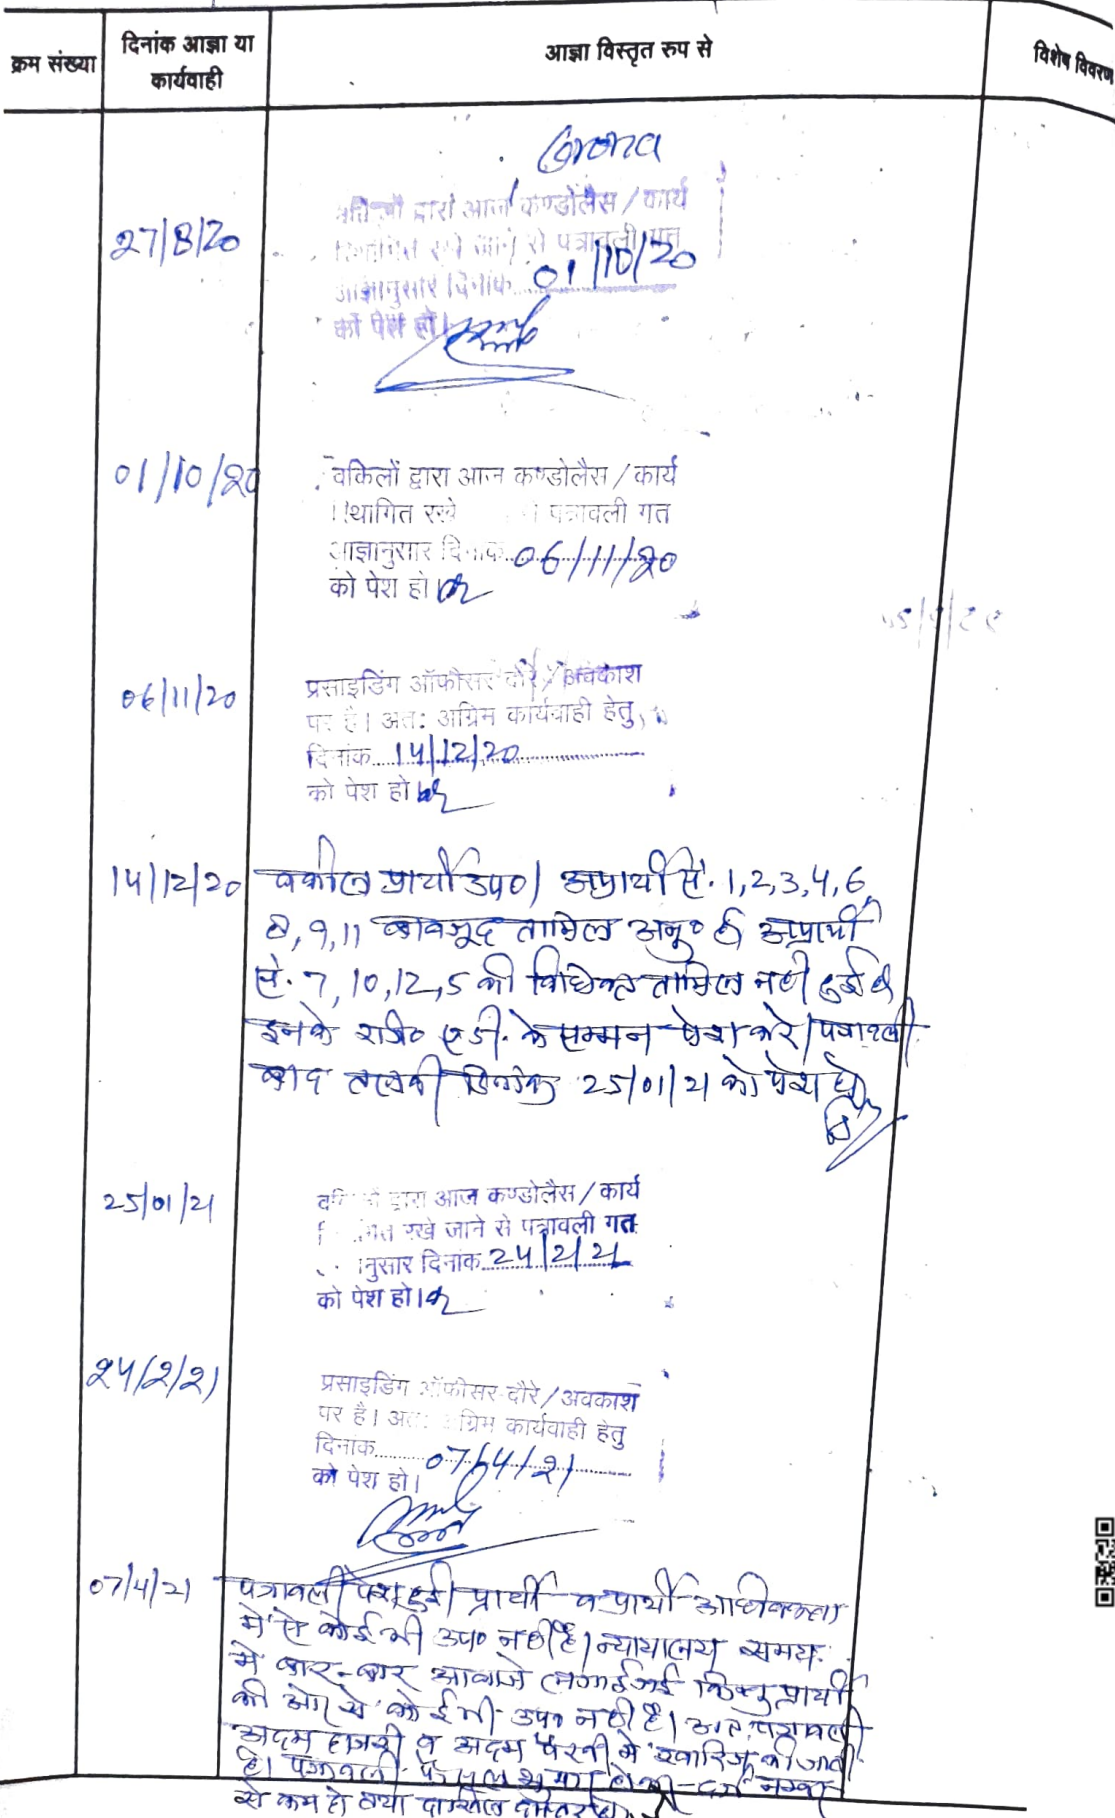 क्रम संख्या
दिनांक आज्ञा या
कार्यवाही
आज्ञा विस्तृत रुप से
विशेष विवरण
Corona
27/8/20
द्वारा आज कण्डोलैस / कार्य
रखे जाने से पत्रावली गत
आज्ञानुसार दिनांक 01/10/20
को पेश हो।
01/10/20
वकिलों द्वारा आज कण्डोलैस / कार्य
स्थागित रखे पत्रावली गत
आज्ञानुसार दिनांक 06/11/20
को पेश हो।
06/11/20
प्रसाइडिंग ऑफीसर दौरे / अवकाश
पर है। अतः अग्रिम कार्यवाही हेतु
दिनांक 14/12/20
को पेश हो।
14/12/20
वकील प्रार्थी उप०। अप्रार्थी सं. 1,2,3,4,6,
8,9,11 बावजूद तामिल अनु० है अप्रार्थी
सं. 7,10,12,5 की विधिवत तामिल नही हुई है
इनके रजि० ए.डी. के सम्मन पेश करे। पत्रावली
बाद तलबी दिनांक 25/01/21 को पेश हो
25/01/21
द्वारा आज कण्डोलैस / कार्य
रखे जाने से पत्रावली गत
नुसार दिनांक 24/2/21
को पेश हो।
24/2/21
प्रसाइडिंग ऑफीसर दौरे / अवकाश
पर है। अतः अग्रिम कार्यवाही हेतु
दिनांक 07/04/21
को पेश हो।
07/4/21
पत्रावली पेश हुई। प्रार्थी व प्रार्थी अधिवक्ता
मे से कोई भी उप० नही है। न्यायालय समय
मे बार-बार आवाजे लगाई गई किन्तु प्रार्थी
की ओर से कोई भी उप० नही है। अतः पत्रावली
अदम हाजरी व अदम पैरवी मे खारिज की जाती
है। पत्रावली फैसल शुमार होकर दर्ज नम्बर
से कम हो तथा दाखिल दफ्तर हो।